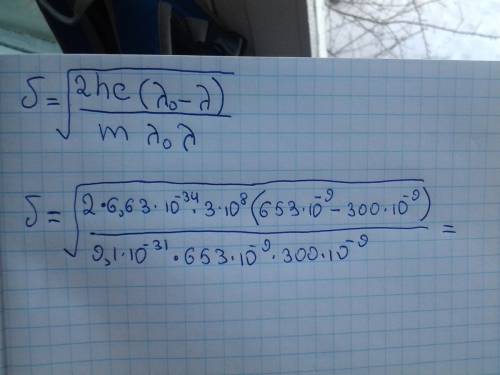 J = √(2hc(λ₀ - λ) / m λ₀ λ)
J = √(2·6,63·10⁻³⁴·3·10⁸(653·10⁻⁹ - 300·10⁻⁹) / 9,1·10⁻³¹·653·10⁻⁹·300·10⁻⁹) =